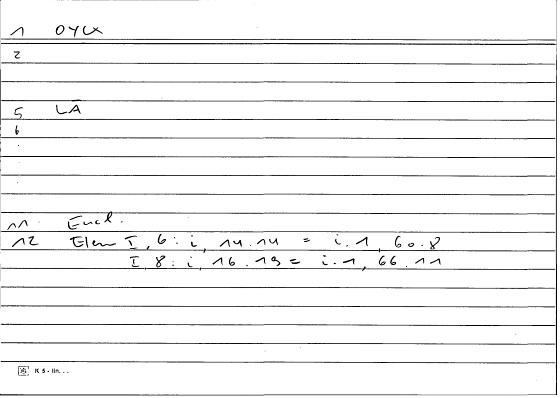 1 OYCX
2
5 LĀ
6
11. Eucl.
12 Elem I, 6: i, 14.14 = i.1, 60.8
I, 8: i, 16.19 = i.1, 66.11
K 5 - lin...